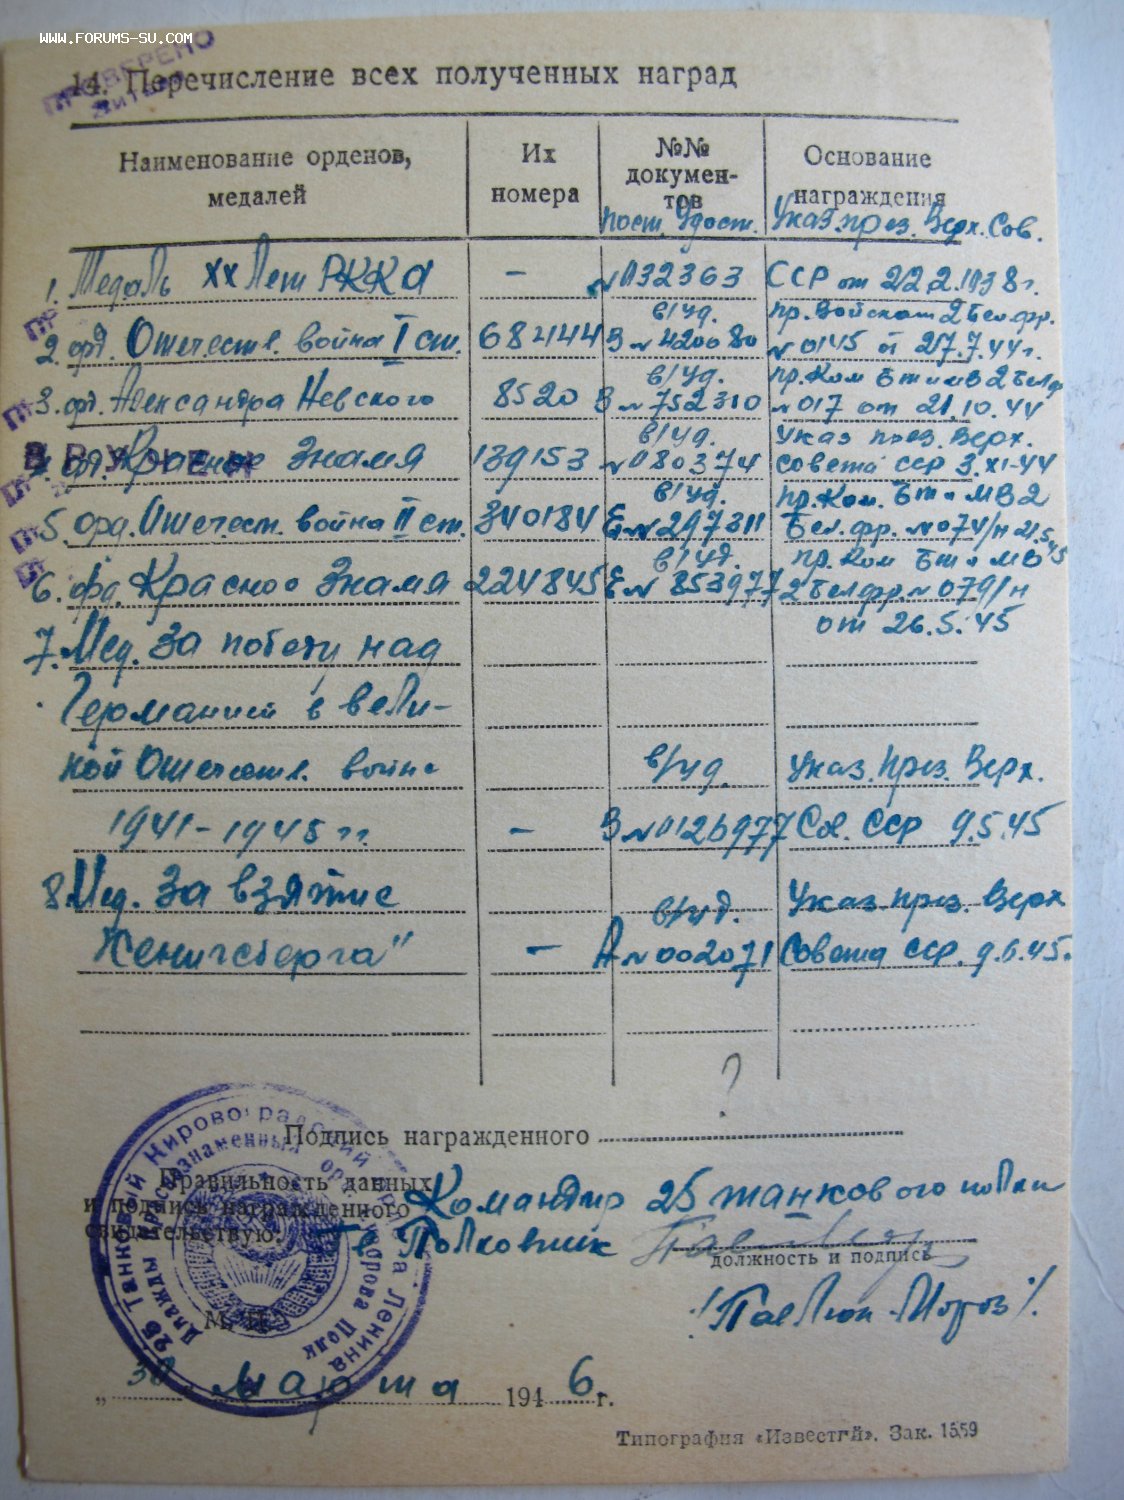 www.forums-su.com
ПРОВЕРЕНО
14. Перечисление всех полученных наград
Наименование орденов, медалей
Их номера
№№ документов
Основание награждения
Пост. Удост. Указ. през. Верх. Сов.
1. Медаль XX Лет РККА - №032363 СССР от 22.2.1938 г.
в/уд. пр. Войскам 2 Бел. фр.
2. орд. Отечеств. война I ст. 68444 В №420080 №0145 от 27.7.44 г.
в/уд. пр. Ком БТ и МВ 2 Бел. ф
3. орд. Александра Невского 8520 В №752310 №017 от 21.10.44
в/уд. Указ през. Верх.
4. орд. Красное Знамя 139153 №080374 Совета ССР 3.XI-44
ВРУЧЕН
в/уд. пр. Ком. БТ и МВ 2
5. орд. Отечест. война II ст. 340184 Е №297311 Бел. фр. №074/н 21.5.45
в/уд. пр. Ком БТ и МВ
6. орд. Красное Знамя 224845 Е №853977 2 Бел фр. №079/н
от 26.5.45
7. Мед. За победу над
Германией в Вели-
кой Отечеств. войне в/уд. Указ. През. Верх.
1941-1945 гг. - В №0126977 Сов. ССР 9.5.45
8. Мед. За взятие в/уд. Указ. през. Верх
Кенигсберга" - А №002071 Совета ССР. 9.6.45.
?
Подпись награжденного
Правильность данных
и подпись награжденного
свидетельствую:
Командир 25 танкового полка
Гв Полковник
должность и подпись
/Павлюк-Мороз/
М. П.
25 Танковый Кировоградский ордена Ленина
Дважды Краснознаменный орд. Суворова Полк
„30" марта 1946 г.
Типография «Известий». Зак. 1559